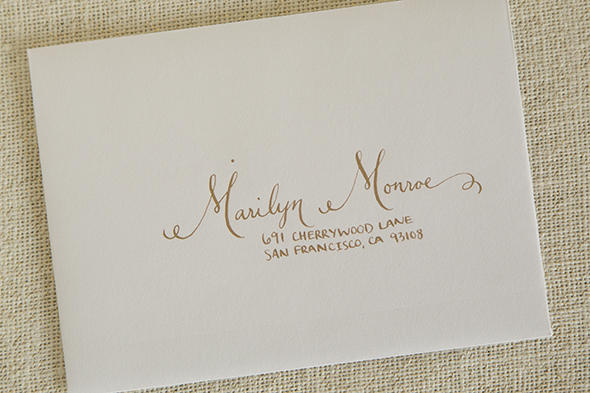 Marilyn Monroe
691 CHERRYWOOD LANE
SAN FRANCISCO, CA 93108